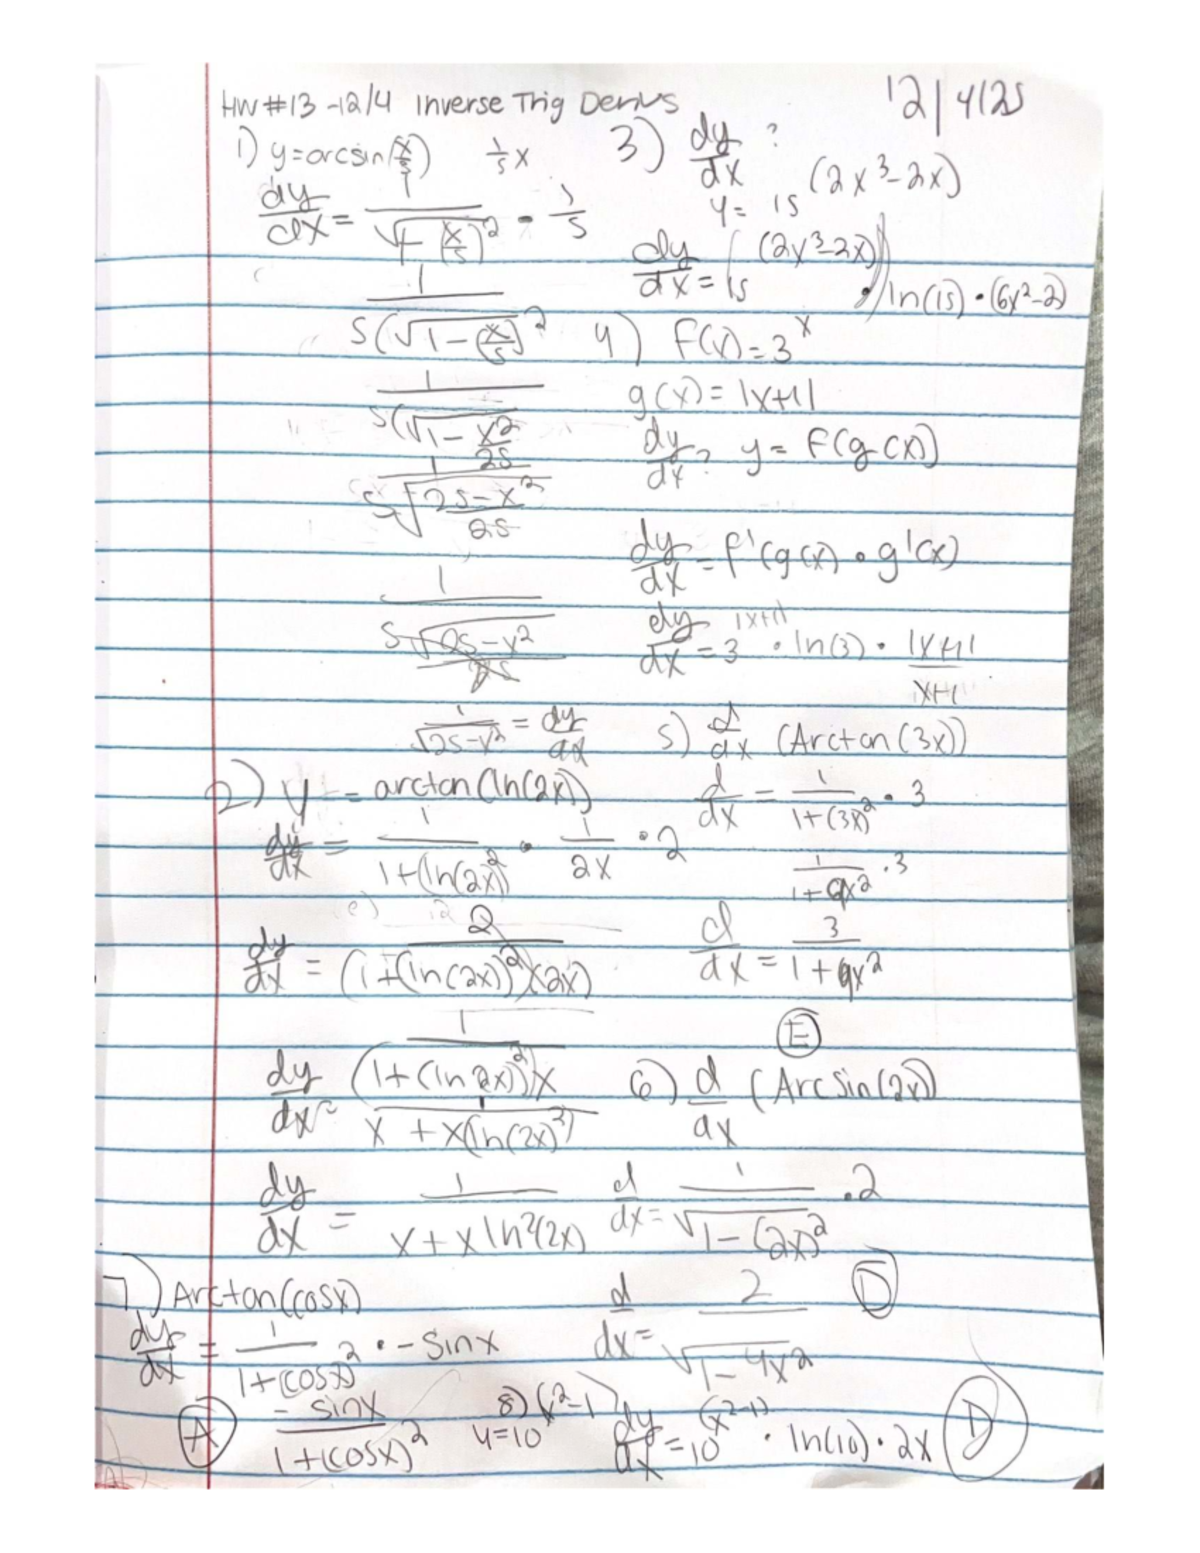 HW #13 - 12/4 Inverse Trig Derivs
12/4/25
1) y=arcsin(x/5) 1/5 x
dy/dx = 1/√(1-(x/5)²) · 1/5
1/5(√1-(x/5)²
1/5(√1-x²/25
1/5√(25-x²/25)
1/5√25-x²/25
1/√25-x² = dy/dx
2) y = arctan(ln(2x))
dy/dx = 1/1+(ln(2x))² · 1/2x · 2
dy/dx = 2/(1+(ln(2x))²)(2x)
dy/dx = 1/(1+(ln2x))²)x
1/x + x(ln(2x)²)
dy/dx = 1/x+xln²(2x)
3) dy/dx ?
y= 15^(2x³-2x)
dy/dx = (15^(2x³-2x)) · ln(15) · (6x²-2)
4) f(x)=3^x
g(x)= |x+1|
dy/dx? y= f(g(x))
dy/dx = f'(g(x) · g'(x)
dy/dx = 3^|x+1| · ln(3) · |x+1|/x+1
5) d/dx (Arctan(3x))
d/dx = 1/1+(3x)² · 3
1/1+9x² · 3
d/dx = 3/1+9x²
E
6) d/dx (Arcsin(2x))
d/dx = 1/√1-(2x)² · 2
d/dx = 2/√1-4x² D
7) Arctan(cosx)
dy/dx = 1/1+(cosx)² · -sinx
A -sinx/1+(cosx)²
8) y=10^(x²-1)
dy/dx = 10^(x²-1) · ln(10) · 2x D